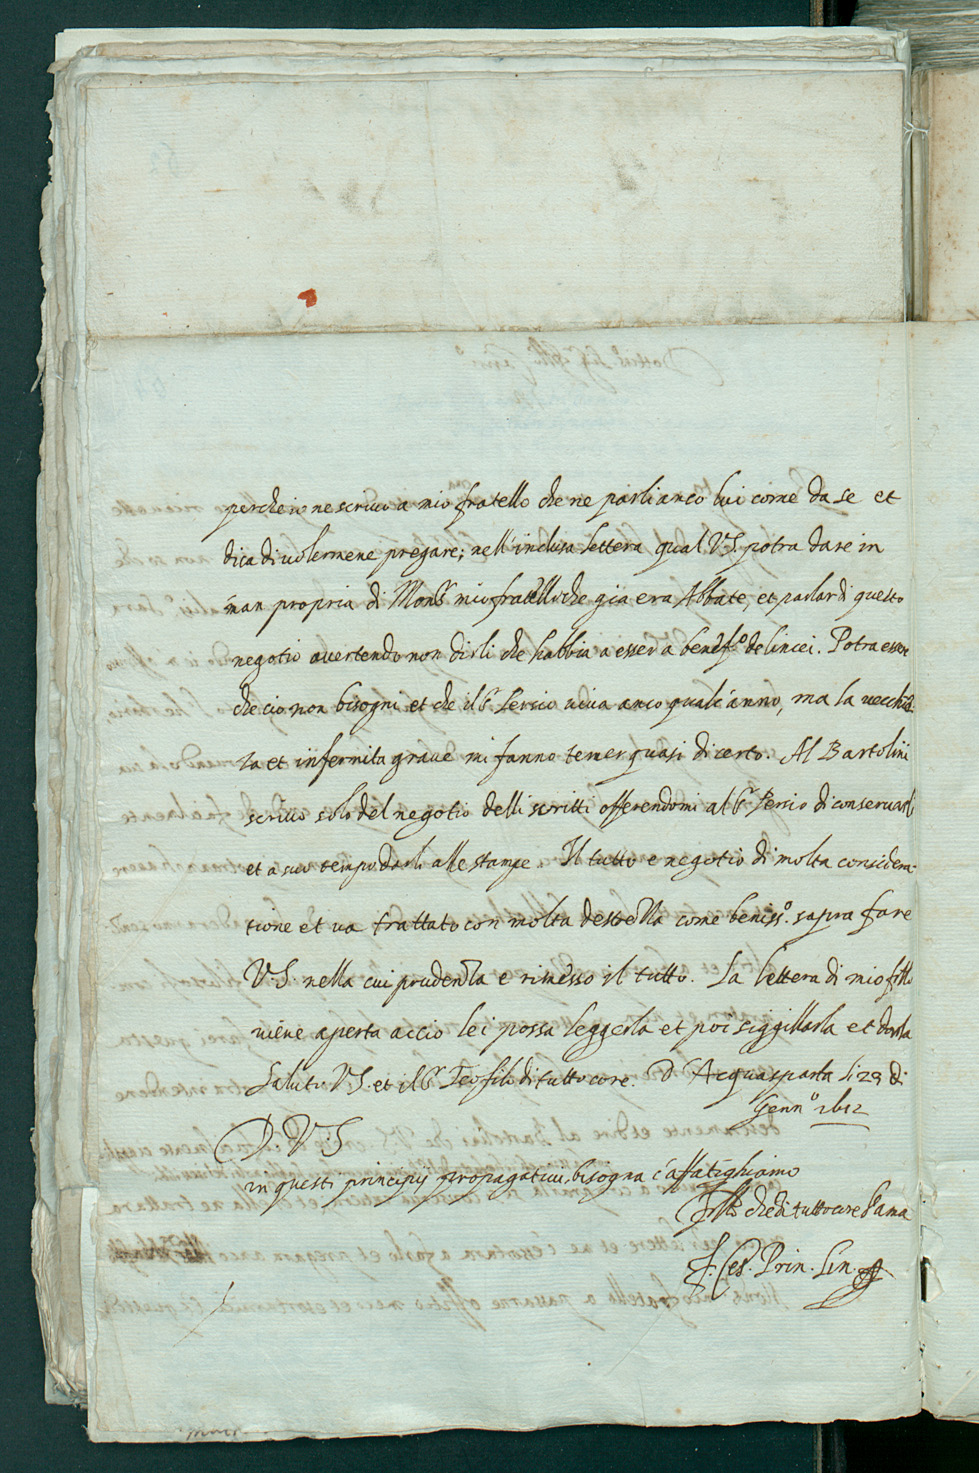 perche io ne scrivo a mio fratello che ne parli anco lui come da se et
dica di volermene pregare; nell'inclusa lettera qual V.S. potra dare in
man propria di Mons.r mio fratello che gia era Abbate, et parlar di questo
negotio avertendo non dirli che habbia a esser a benef.o de lincei. Potra esser
che cio non bisogni et che il S.r Persio viva anco qualc'anno, ma la vecchiez-
za et infermita grave mi fanno temer quasi di certo. Al Bartolini
scrivo solo del negotio delli scritti offerendomi al S.r Persio di conservarli
et a suo tempo darli alle stampe. Il tutto e negotio di molta considera-
tione et va trattato con molta destrezza come beniss.o sapra fare
V.S. nella cui prudenza e rimesso il tutto. La lettera di mio fr.llo
viene aperta accio lei possa leggerla et poi siggillarla et darla
Saluto V.S. et il S.r Teofilo di tutto core. D'Acquasparta li 29 di
Genn.o 1612
D. V.S.
in questi principij propagativi bisogna c'affatighiamo
Fr.llo che di tutto core l'ama
F. Ces. Prin. Lin.